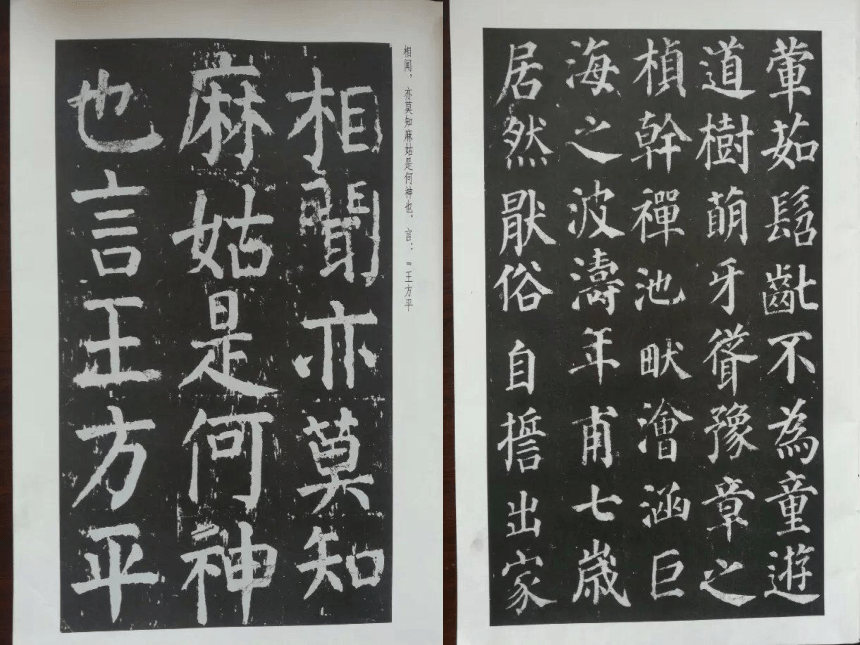 相闻，亦莫知麻姑是何神也。言：“王方平
相聞亦莫知
麻姑是何神
也言王方平
葷茹髫齔不為童遊
道樹萌牙聳豫章之
楨幹禪池畎澮涵巨
海之波濤年甫七歲
居然猒俗自誓出家